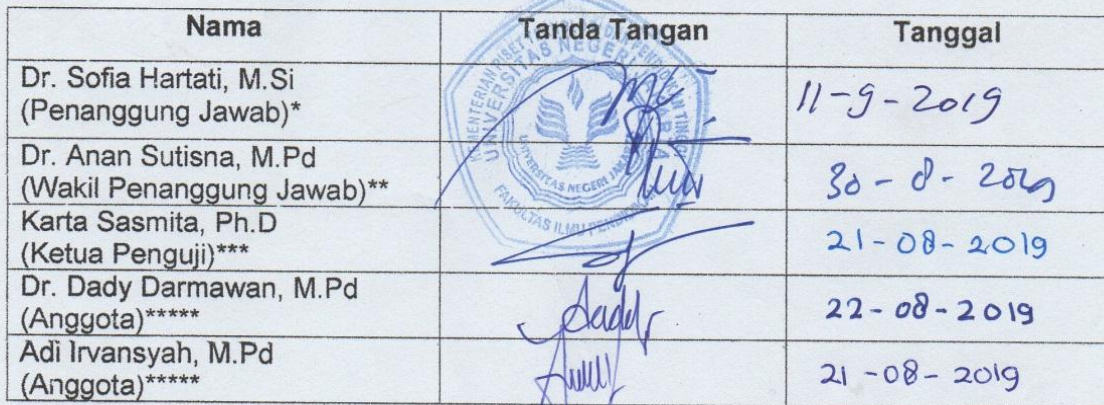 Nama Tanda Tangan Tanggal
Dr. Sofia Hartati, M.Si
(Penanggung Jawab)* 11-9-2019
Dr. Anan Sutisna, M.Pd
(Wakil Penanggung Jawab)** 30-8-2019
Karta Sasmita, Ph.D
(Ketua Penguji)*** 21-08-2019
Dr. Dady Darmawan, M.Pd
(Anggota)***** 22-08-2019
Adi Irvansyah, M.Pd
(Anggota)***** 21-08-2019
UNIVERSITAS NEGERI JAKARTA
UNIVERSITAS NEGERI JAKARTA
FAKULTAS ILMU PENDIDIKAN